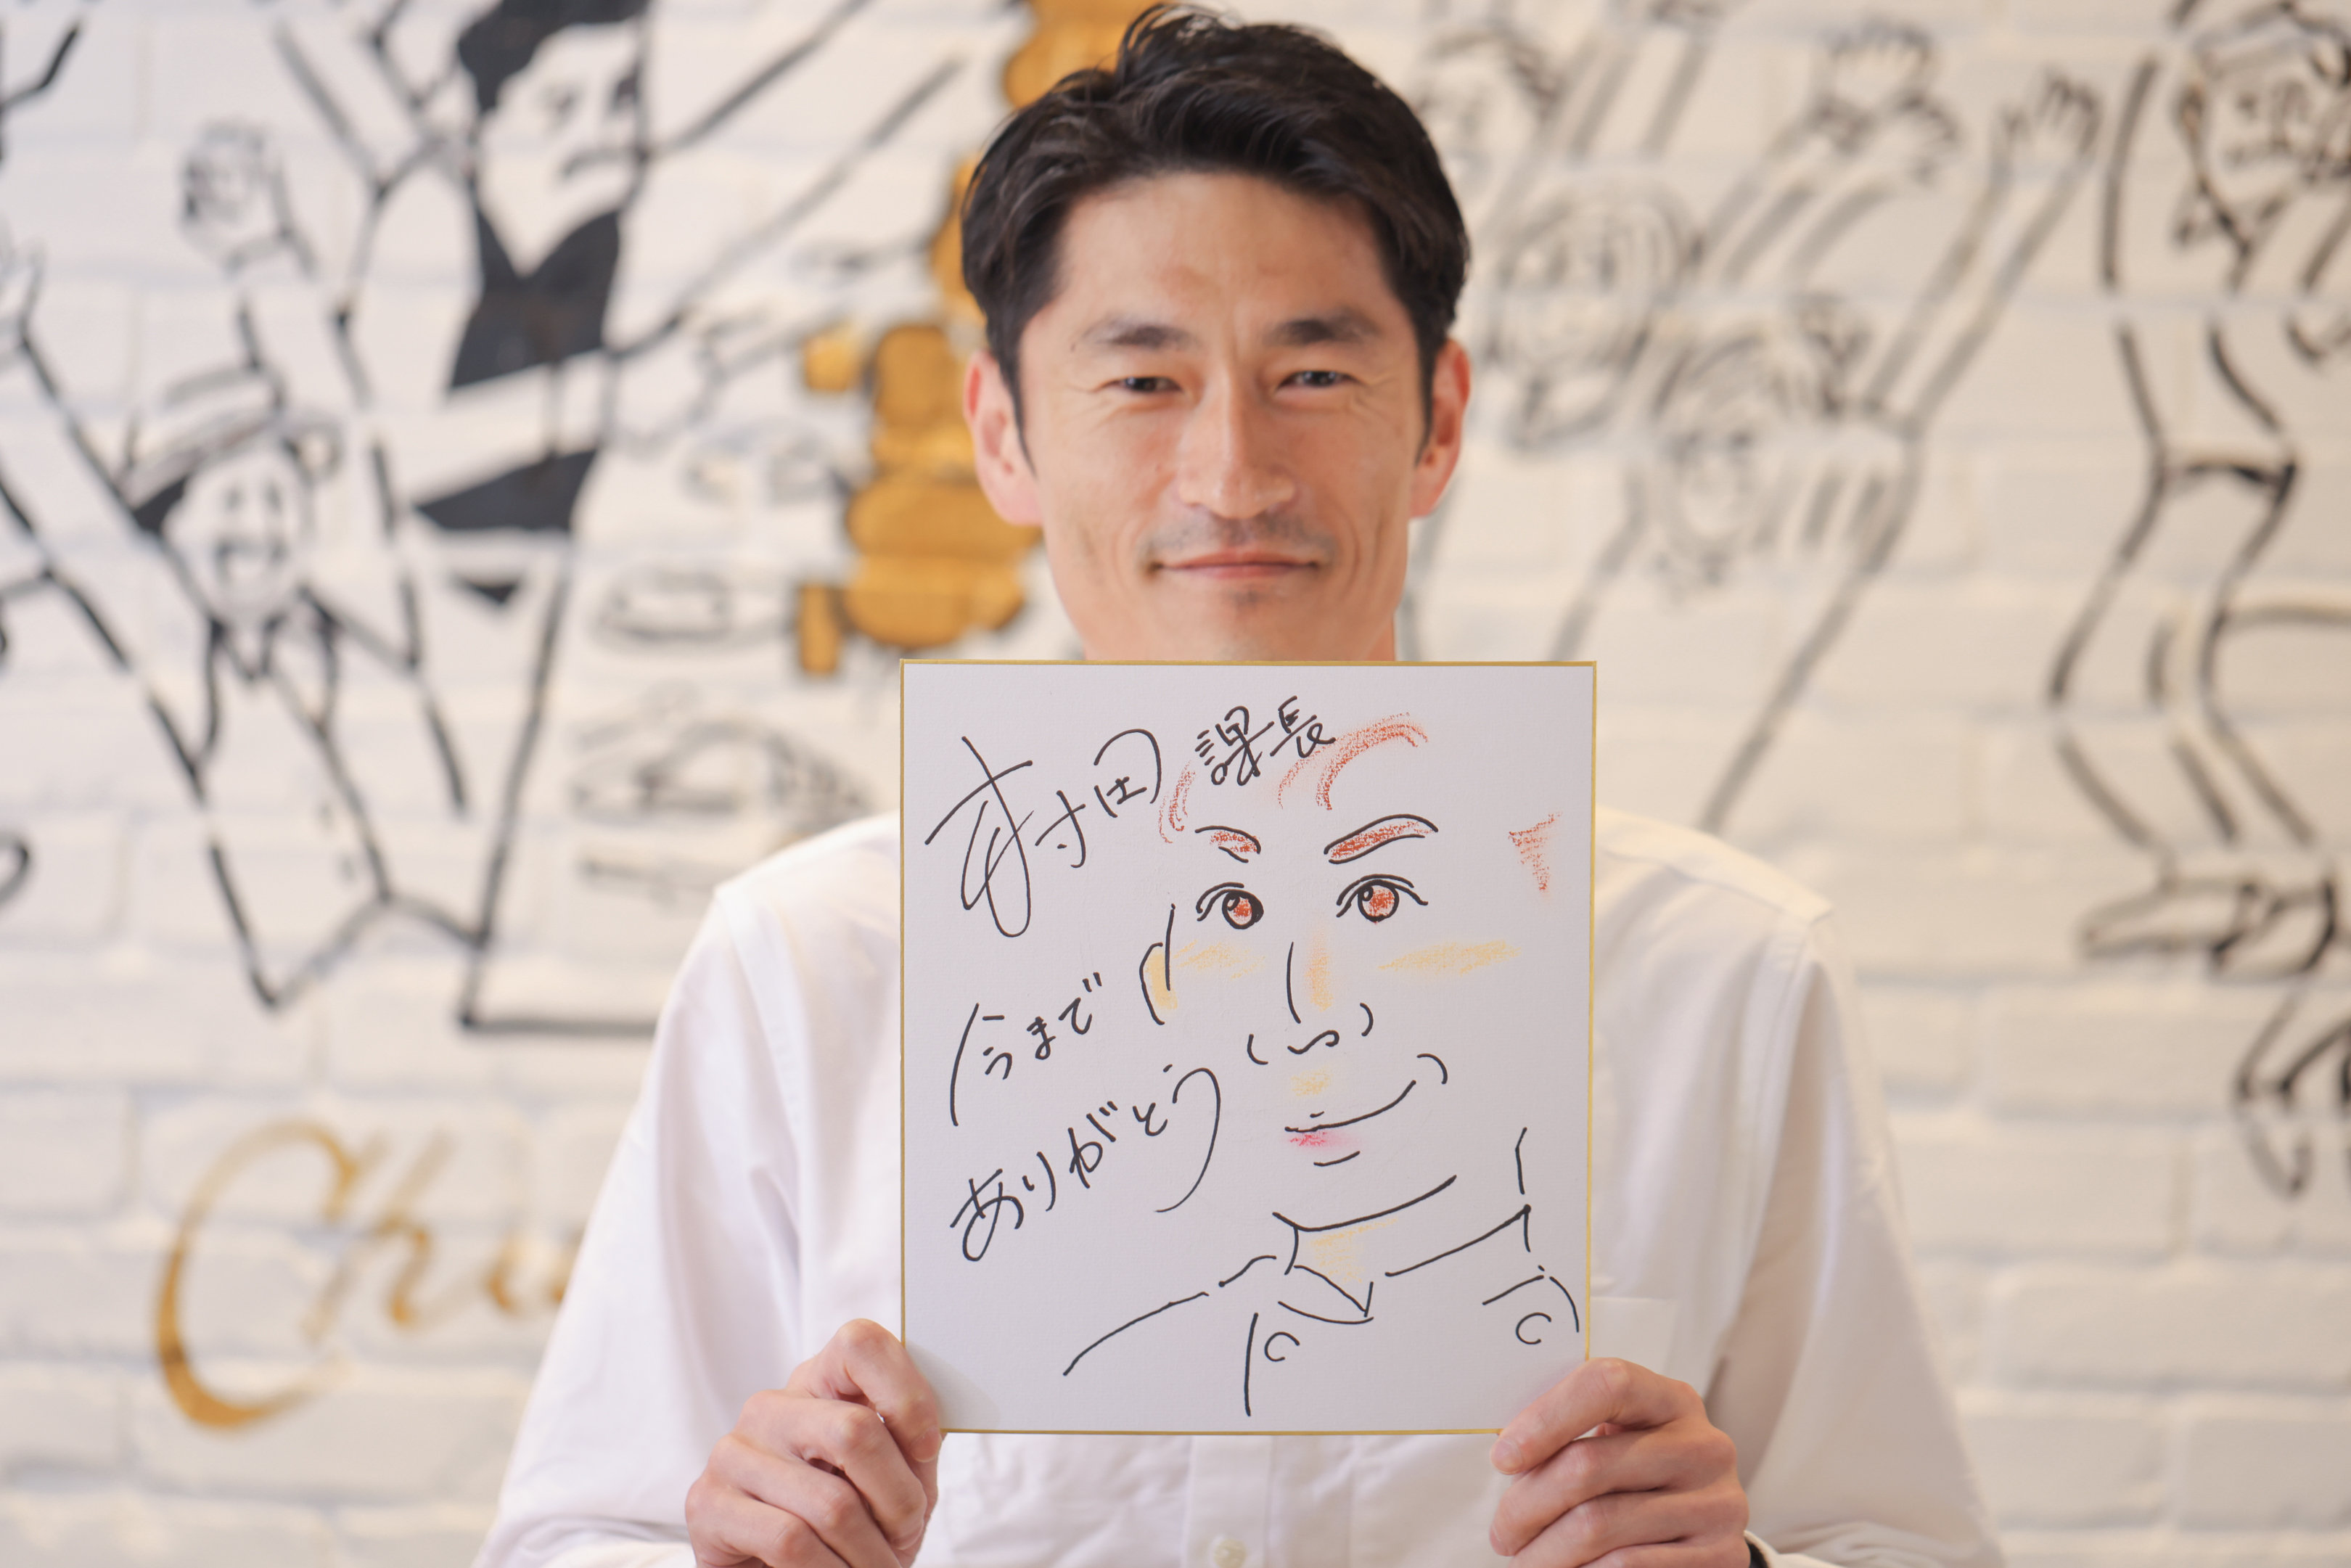 村田課長
今まで
ありがとう
Chu